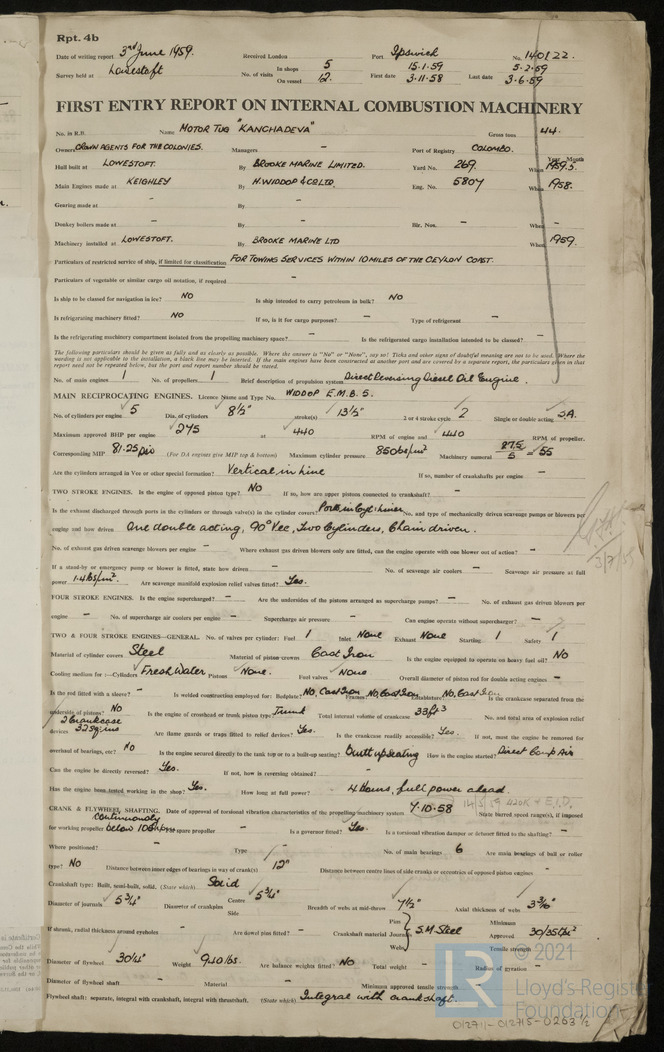 Rpt. 4b
Date of writing report 3rd June 1959. Received London Port Ipswich No. 140122.
Survey held at Lowestoft No. of visits In shops 5 On vessel 12. First date 15.1.59 3.11.58 Last date 5.2.59 3.6.59
FIRST ENTRY REPORT ON INTERNAL COMBUSTION MACHINERY
No. in R.B. Name MOTOR TUG "KANCHADEVA" Gross tons 44.
Owners CROWN AGENTS FOR THE COLONIES. Managers - Port of Registry COLOMBO.
Hull built at LOWESTOFT. By BROOKE MARINE LIMITED. Yard No. 269. Year Month When 1959.5.
Main Engines made at KEIGHLEY By H. WIDDOP & CO LTD. Eng. No. 5807 When 1958.
Gearing made at - By -
Donkey boilers made at - By - Blr. Nos. - When -
Machinery installed at LOWESTOFT. By BROOKE MARINE LTD When 1959.
Particulars of restricted service of ship, if limited for classification FOR TOWING SERVICES WITHIN 10 MILES OF THE CEYLON COAST.
Particulars of vegetable or similar cargo oil notation, if required -
Is ship to be classed for navigation in ice? NO Is ship intended to carry petroleum in bulk? NO
Is refrigerating machinery fitted? NO If so, is it for cargo purposes? - Type of refrigerant -
Is the refrigerating machinery compartment isolated from the propelling machinery space? - Is the refrigerated cargo installation intended to be classed? -
The following particulars should be given as fully and as clearly as possible. Where the answer is "No" or "None", say so! Ticks and other signs of doubtful meaning are not to be used. Where the
wording is not applicable to the installation, a black line may be inserted. If the main engines have been constructed at another port and are covered by a separate report, the particulars given in that
report need not be repeated below, but the port and report number should be stated.
No. of main engines 1 No. of propellers 1 Brief description of propulsion system Direct Reversing Diesel Oil Engine.
MAIN RECIPROCATING ENGINES. Licence Name and Type No. WIDDOP E.M.B. 5.
No. of cylinders per engine 5 Dia. of cylinders 8½" stroke(s) 13½" 2 or 4 stroke cycle 2 Single or double acting S.A.
Maximum approved BHP per engine 275 at 440 RPM of engine and 440 RPM of propeller.
Corresponding MIP 81.25 (For DA engines give MIP top & bottom) Maximum cylinder pressure 850 lbs/in² Machinery numeral 275/5 = 55
Are the cylinders arranged in Vee or other special formation? Vertical in line If so, number of crankshafts per engine -
TWO STROKE ENGINES. Is the engine of opposed piston type? NO If so, how are upper pistons connected to crankshaft? -
Is the exhaust discharged through ports in the cylinders or through valve(s) in the cylinder covers? Ports in Cyl: Liner No. and type of mechanically driven scavenge pumps or blowers per
engine and how driven One double acting, 90° Vee, Two Cylinders, Chain driven.
No. of exhaust gas driven scavenge blowers per engine - Where exhaust gas driven blowers only are fitted, can the engine operate with one blower out of action? -
If a stand-by or emergency pump or blower is fitted, state how driven - No. of scavenge air coolers - Scavenge air pressure at full
power 1.4 lbs/in². Are scavenge manifold explosion relief valves fitted? Yes.
FOUR STROKE ENGINES. Is the engine supercharged? - Are the undersides of the pistons arranged as supercharge pumps? - No. of exhaust gas driven blowers per
engine - No. of supercharge air coolers per engine - Supercharge air pressure - Can engine operate without supercharger? -
TWO & FOUR STROKE ENGINES—GENERAL. No. of valves per cylinder: Fuel 1 Inlet None Exhaust None Starting 1 Safety 1
Material of cylinder covers Steel Material of piston crowns Cast Iron Is the engine equipped to operate on heavy fuel oil? NO
Cooling medium for :—Cylinders Fresh Water. Pistons None. Fuel valves None Overall diameter of piston rod for double acting engines -
Is the rod fitted with a sleeve? - Is welded construction employed for: Bedplate? No, Cast Iron Frames? No, Cast Iron Entablature? No, Cast Iron Is the crankcase separated from the
underside of pistons? NO Is the engine of crosshead or trunk piston type? Trunk Total internal volume of crankcase 33 ft³ No. and total area of explosion relief
devices 2 crankcase 32 sq ins Are flame guards or traps fitted to relief devices? Yes. Is the crankcase readily accessible? Yes. If not, must the engine be removed for
overhaul of bearings, etc? No Is the engine secured directly to the tank top or to a built-up seating? Built up seating How is the engine started? Direct Comp Air
Can the engine be directly reversed? Yes. If not, how is reversing obtained? -
Has the engine been tested working in the shop? Yes. How long at full power? 4 Hours, full power ahead.
CRANK & FLYWHEEL SHAFTING. Date of approval of torsional vibration characteristics of the propelling machinery system 7.10.58 State barred speed range(s), if imposed
for working propeller continuously below spare propeller - Is a governor fitted? Yes. Is a torsional vibration damper or detuner fitted to the shafting? -
Where positioned? - Type - No. of main bearings 6 Are main bearings of ball or roller
type? NO Distance between inner edges of bearings in way of crank(s) 12" Distance between centre lines of side cranks or eccentrics of opposed piston engines -
Crankshaft type: Built, semi-built, solid. (State which) Solid
Diameter of journals 5¾" Diameter of crankpins Centre 5¾" Side Breadth of webs at mid-throw 7½" Axial thickness of webs 3 3/16"
If shrunk, radial thickness around eyeholes - Are dowel pins fitted? - Crankshaft material Pins Journals Webs S.M Steel Minimum Approved Tensile strength 30/35 T/in²
Diameter of flywheel 30¼" Weight 940 lbs. Are balance weights fitted? NO Total weight - Radius of gyration -
Diameter of flywheel shaft - Material - Minimum approved tensile strength -
Flywheel shaft: separate, integral with crankshaft, integral with thrustshaft. (State which) Integral with crankshaft.
LR
© 2021
Lloyd's Register
Foundation
012711-012715-0263 ½